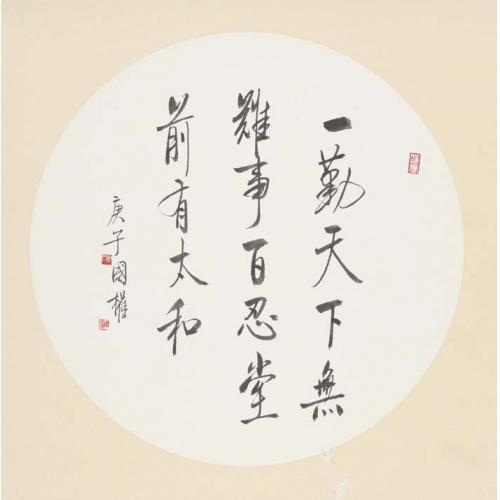 一勤天下無
難事百忍堂
前有太和
庚子國權